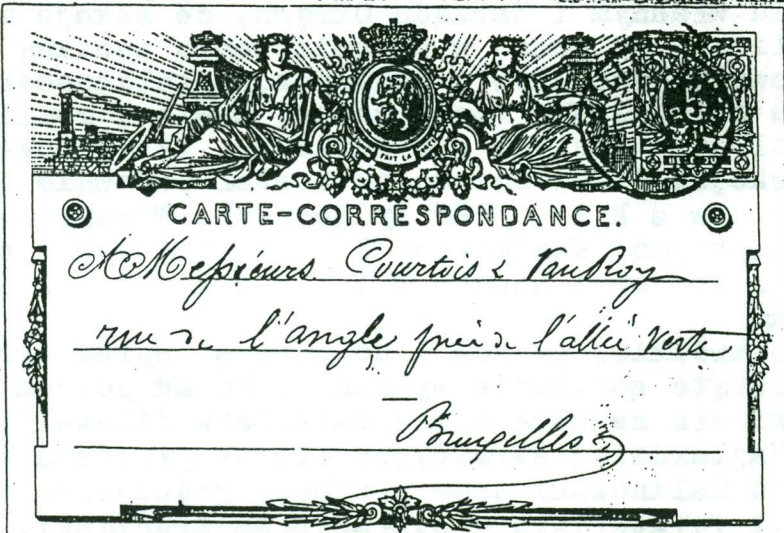 FAIT LA
CARTE-CORRESPONDANCE.
A Messieurs Courtois & Van Roy
rue de l'angle près de l'allée verte
Bruxelles